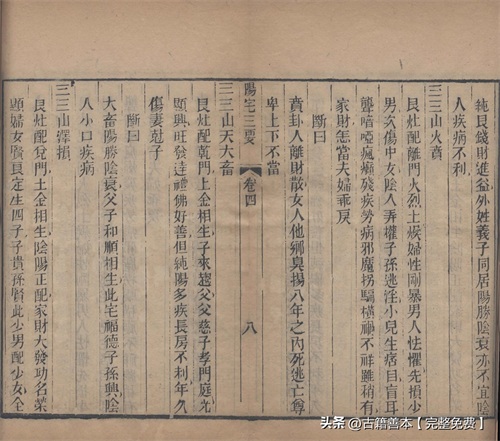 純艮錢財進益外姓義子同居陽勝陰衰亦不宜陰
人疾病不利
三三山火賁
艮灶配離門火烈土燥婦性剛暴男人怯懼先損少
男次傷中女陰人弄權子孫逃淫小兒生痞目盲耳
聾喑啞瘋癩殘疾勞病邪魔拐騙橫禍不祥雖稍有
家財怎當夫婦乖戾
斷曰
賁卦人離財散女人他鄉臭揚八年之內死逃亡尊
卑上下不當
陽宅三要 卷四 八
三三山天大畜
艮灶配乾門土金相生子來趨父父慈子孝門庭光
顯興旺發達禮佛好善但純陽多疾長房不利年久
傷妻尅子
斷曰
大畜陽勝陰衰父子和順相生此宅福德子孫興陰
人小口疾病
三三山澤損
艮灶配兌門土金相生陰陽正配家財大發功名榮
顯婦女賢良定生四子子貴孫賢此少男配少女全
头条 @古籍善本【完整免费】